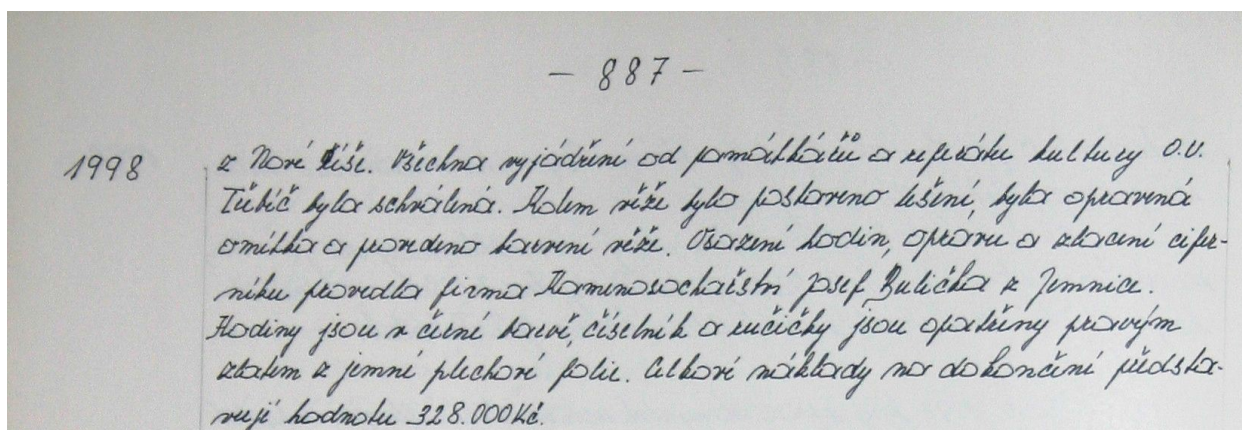 - 887 -
1998 z Nové Říše. Všechna vyjádření od památkářů a referátu kultury O.Ú.
Třebíč byla schválená. Kolem věže bylo postaveno lešení, byla opravená
omítka a provedeno barvení věže. Osazení hodin, opravu a zlacení cifer-
níku provedla firma Kamenosochařství Josef Bulička z Jemnice.
Hodiny jsou v černé barvě, číselník a ručičky jsou opatřeny pravým
zlatem z jemné plechové folie. Celkové náklady na dokončení předsta-
vují hodnotu 328.000 Kč.